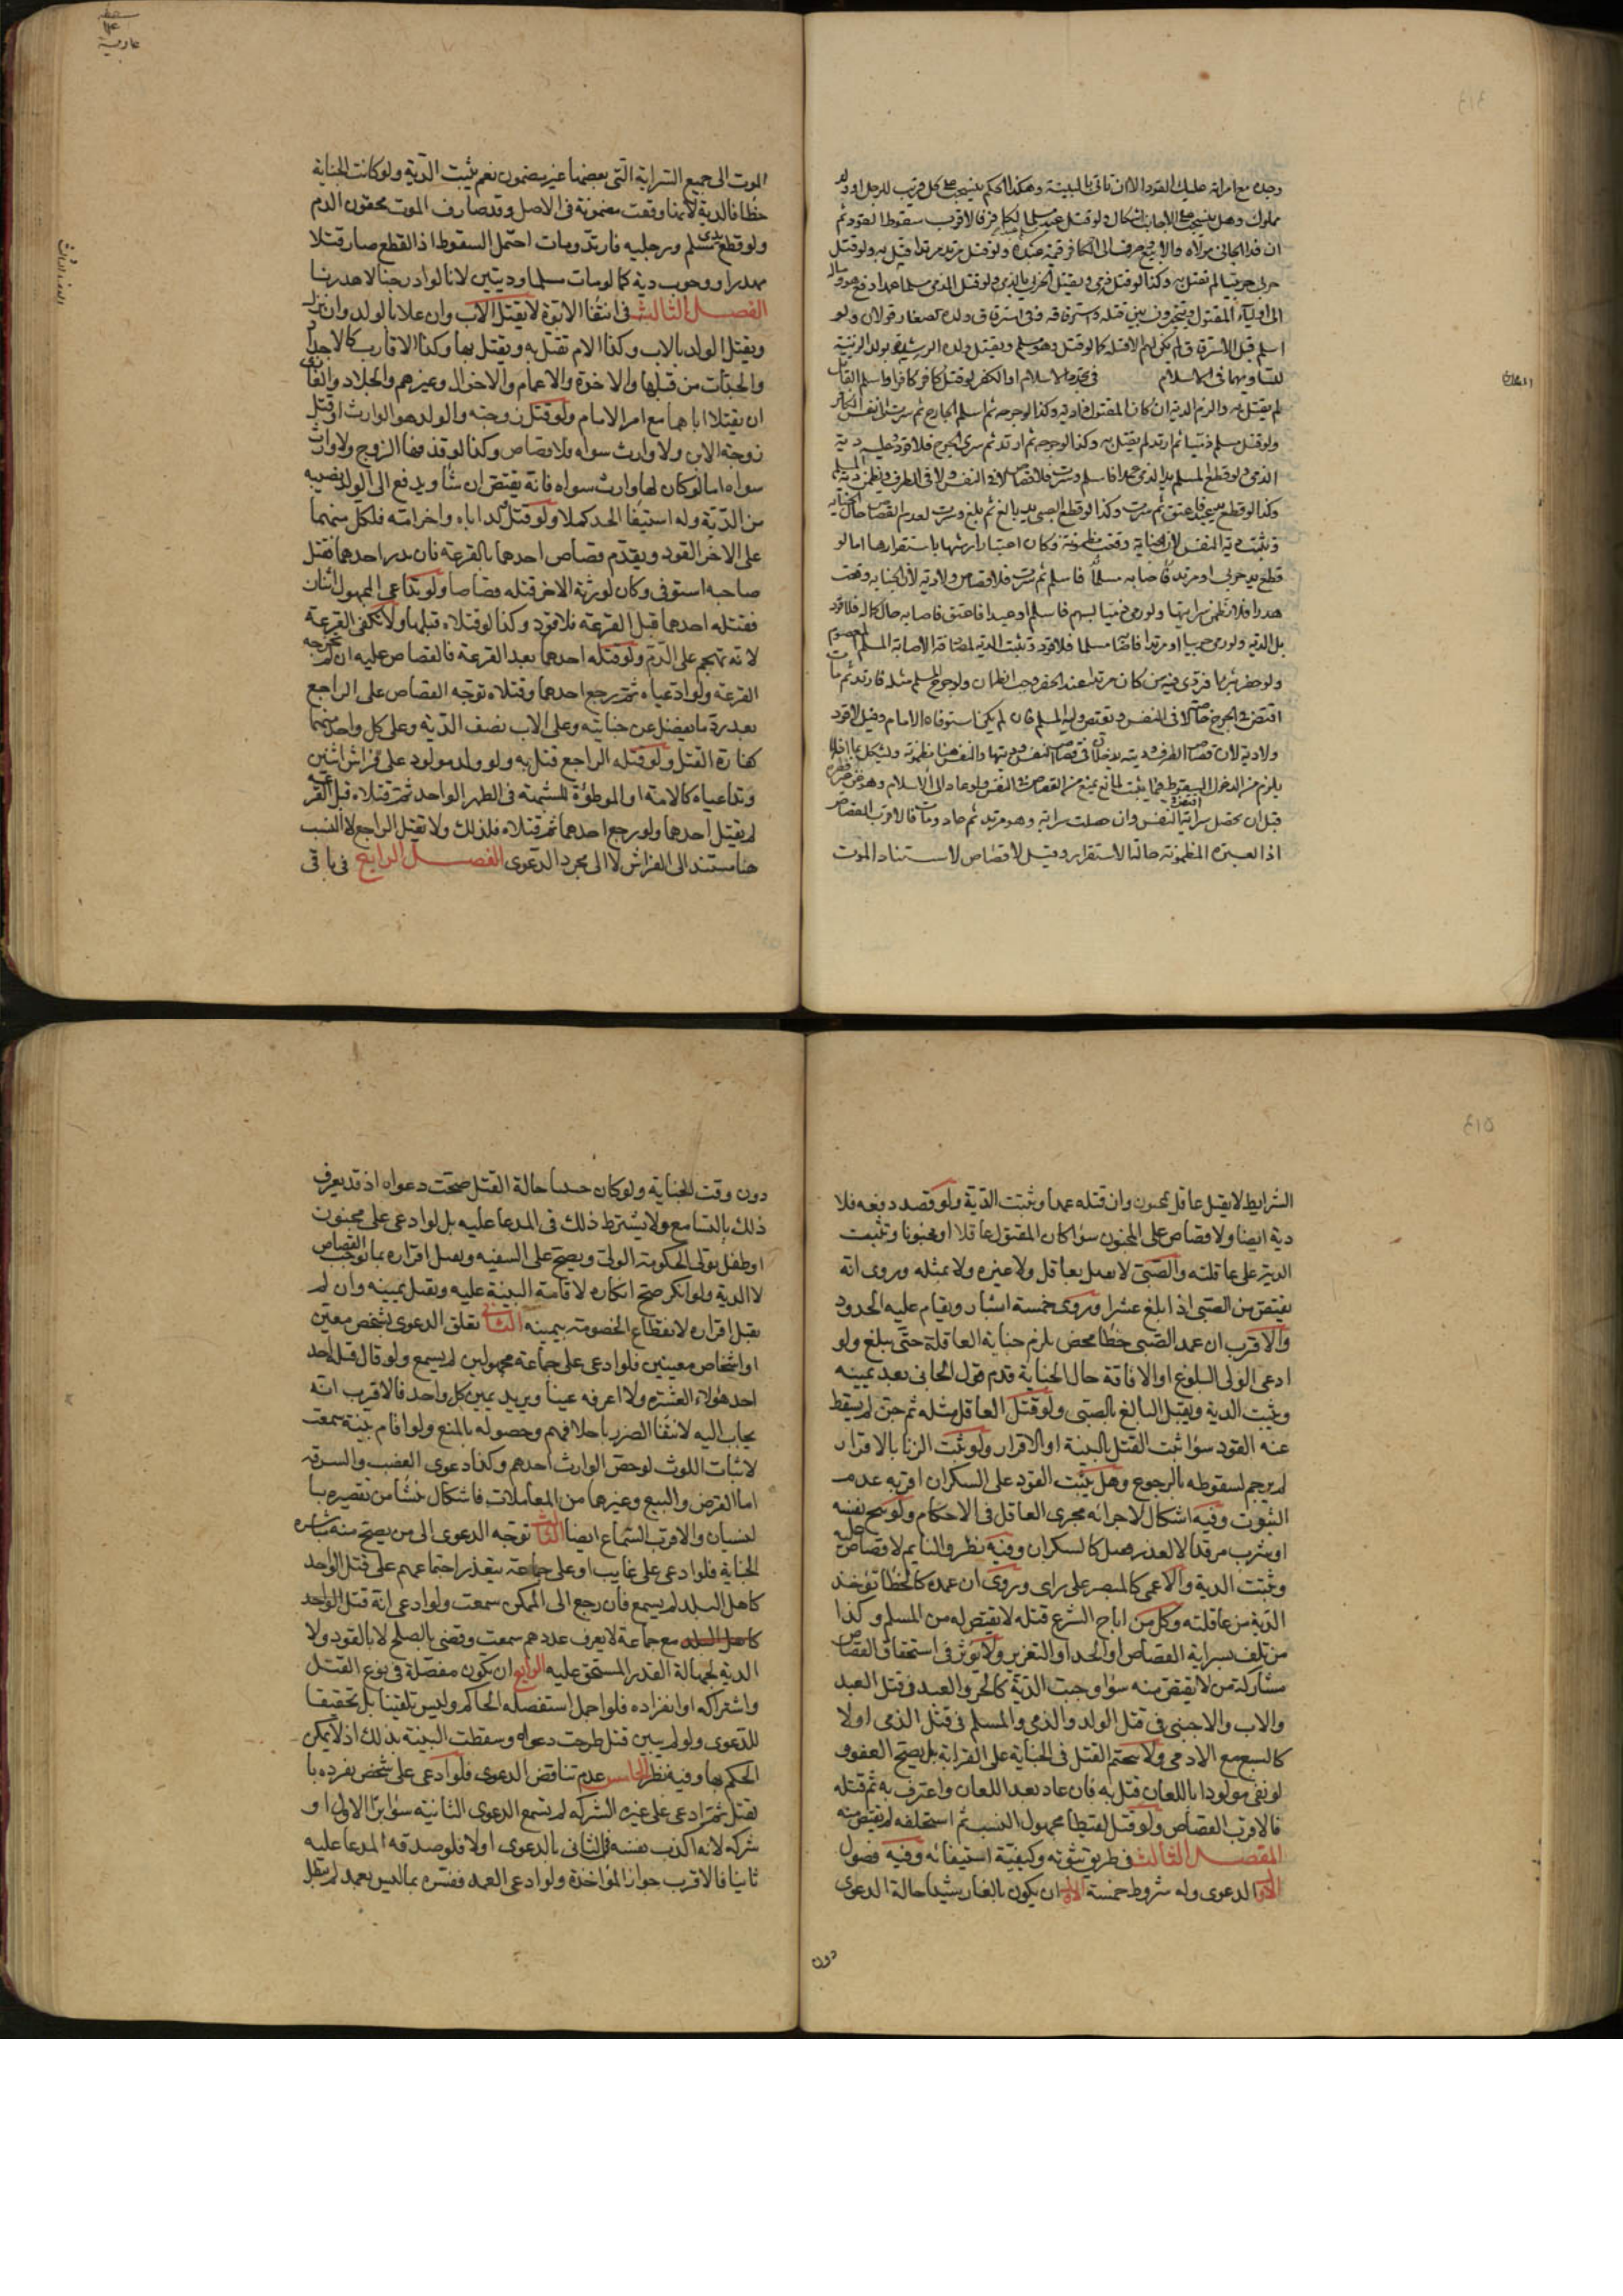 وجده مع امراته عليك القود الا ان تاتى بالبينة وهكذا الحكم ينسحب على كل قريب للرجل او ولد
مملوك وهل ينسحب على الاجانب اشكال ولو قتل عبد مسلم عبدا مسلما لكافر فالاقرب سقوط القود ثم
ان فداه الجانى مولاه والا بيع وصرف الى الكافر قيمة عبده ولو قتل مرتد مرتدا قتل به ولو قتل
حربى حربيا لم يقتل به وكذا لو قتل ذمى ويقتل الحربى بالذمى ولو قتل الذمى مسلما عمدا دفع هو وماله
الى اولياء المقتول ويتخيرون بين قتله واسترقاقه وفى استرقاق ولده الصغار قولان ولو
اسلم قبل الاسترقاق لم يكن لهم الا قتله كما لو قتل وهو مسلم ويقتل ولد الرشيدة بولد الزنية
لتساويهما فى الاسلام فى تجدد الاسلام او الكفر لو قتل كافر كافرا واسلم القاتل
لم يقتل به والزم الدية ان كان المقتول ذا دية وكذا لو جرحه ثم اسلم الجارح ثم سرت الى نفس الكافر
ولو قتل مسلم ذميا ثم ارتد لم يقتل به وكذا لو جرحه ثم ارتد ثم سرى الجرح فلا قود وعليه دية
الذمى ولو قطع المسلم يد الذمى عمدا فاسلم وسرت فلا قصاص لا فى النفس ولا فى الطرف ويضمن دية المسلم
وكذا لو قطع يد عبد فاعتق ثم سرت وكذا لو قطع الصبى يد بالغ ثم بلغ وسرت لعدم القصاص حال الجناية
وتثبت دية النفس لان الجناية وقعت مضمونة وكان اعتبار ارشها باستقرارها اما لو
قطع يد حربى او مرتد فاسلم ثم سرت فلا قصاص ولا دية لان الجناية وقعت
هدرا فلا تضمن سرايتها ولو رمى ذميا بسهم فاسلم او عبدا فاعتق فاصابه حال كماله فلا قود
بل الدية ولو رمى حربيا او مرتدا فاصابه مسلما فلا قود وتثبت الدية لمصادفة الاصابة المسلم المعصوم
ولو حفر بئرا فتردى فيه من كان مرتدا عند الحفر وجب الضمان ولو جرح المسلم مثله فارتد ثم مات
اقتص فى الجرح خاصة لا فى النفس ويقتص وليه المسلم فان لم يكن استوفاه الامام وقيل لا قود
ولا دية لان قصاص الطرف وديته يدخلان فى قصاص النفس وديتها والنفس هنا مضمونة ويشكل بما انه لا
يلزم من الدخول السقوط فيما يثبت لمانع يمنع من القصاص فى النفس ولو عاد الى الاسلام
قبل ان تحصل سراية اقتص فى النفس وان حصلت سراية وهو مرتد ثم عاد ومات فالاقرب القصاص
اذ العبرة المضمونة حالتا الاستقرار وقيل لا قصاص لاستناد الموت
الموت الى جميع السراية التى بعضها غير مضمون نعم يثبت الدية ولو كانت الجناية
خطأ فالدية لانها وقعت مضمونة فى الاصل وقد صادف الموت محقون الدم
ولو قطع يدى مسلم ورجليه فارتد ومات احتمل السقوط اذ القطع صار قتلا
مهدرا ووجوب دية كما لو مات مسلما وديتين لانا لو ادرجنا لاهدرنا
الفصل الثالث فى انتفاء الابوة لا يقتل الاب وان علا بالولد وان نزل
ويقتل الولد بالاب وكذا الام تقتل به ويقتل بها وكذا الاقارب كالاجداد
والجدات من قبلها والاخوة والاعمام والاخوال وغيرهم والجلاد والغازى
ان يقتلا اباهما مع امر الامام ولو قتل زوجته والولد هو الوارث او قتل
زوجة الابن ولا وارث سواه فلا قصاص وكذا لو قذفها الزوج ولا وارث
سواه اما لو كان لها وارث سواه فانه يقتص ان شاء ويدفع الى الولد نصيبه
من الدية وله استيفاء الحد كملا ولو قتل احد الولدين اباه واخر امه فلكل منهما
على الاخر القود ويقدم قصاص احدهما بالقرعة فان بدر احدهما فقتل
صاحبه استوفى وكان لورثة الاخر قتله قصاصا ولو تداعى المجهول اثنان
فقتله احدهما قبل القرعة فلا قود وكذا لو قتلاه قبلها ولا تكفى القرعة
لانه تهجم على الدم ولو قتله احدهما بعد القرعة فالقصاص عليه ان لم تخرجه
القرعة ولو ادعياه ثم رجع احدهما وقتلاه توجه القصاص على الراجع
بعد رد ما يفضل عن جنايته وعلى الاب نصف الدية وعلى كل واحد منهما
كفارة القتل ولو قتله الراجع قتل به ولو ولد مولود على فراش اثنين
وتداعياه كالامة او الموطوءة للشبهة فى الطهر الواحد ثم قتلاه قبل القرعة
لم يقتل احدهما ولو رجع احدهما ثم قتلاه فكذلك ولا يقتل الراجع لان النسب
هنا مستند الى الفراش لا الى مجرد الدعوى الفصل الرابع فى باقى
الشرايط لا يقتل عاقل بمجنون وان قتله عمدا وتثبت الدية ولو قصد دفعه فلا
دية ايضا ولا قصاص على المجنون سواء كان المقتول عاقلا او مجنونا وتثبت
الدية على عاقلته والصبى لا يقتل بعاقل ولا غيره ولا بمثله وروى انه
يقتص من الصبى اذا بلغ عشرا وروى خمسة اشبار ويقام عليه الحدود
والاقرب ان عمد الصبى خطأ محض يلزم جناية العاقلة حتى يبلغ ولو
ادعى الولى البلوغ او الافاقة حال الجناية قدم قول الجانى بعد يمينه
وتثبت الدية ويقتل البالغ بالصبى ولو قتل العاقل مثله ثم جن لم يسقط
عنه القود سواء ثبت القتل بالبينة او الاقرار ولو ثبت الزنا بالاقرار
لم يرجم لسقوطه بالرجوع وهل يثبت القود على السكران اقربه عدم
الثبوت وفيه اشكال لاجرائه مجرى العاقل فى الاحكام ولو بنج نفسه
او شرب مرقدا لا لعذر فهل كالسكران وفيه نظر والنايم لا قصاص عليه
وتثبت الدية والاعمى كالمبصر على راى وروى ان عمده كالخطا تؤخذ
الدية من عاقلته وكل من اباح الشرع قتله لا يقتص له من المسلم وكذا
من تلف بسراية القصاص او الحد او التعزير ولا تؤثر فى استحقاق القصاص
مشاركة من لا يقتص منه سواء وجبت الدية كالحر والعبد فى قتل العبد
والاب والاجنبى فى قتل الولد والذمى والمسلم فى قتل الذمى او لا
كالسبع مع الادمى ولا يتحتم القتل فى الجناية على القرابة بل يصح العفو و
لو نفى مولودا باللعان قتل به فان عاد بعد اللعان واعترف به ثم قتله
فالاقرب القصاص ولو قتل لقيطا مجهول النسب ثم استلحقه لم يقتص منه
المقصد الثالث فى طريق ثبوته وكيفية استيفائه وفيه فصول
الاول الدعوى وله شروط خمسة الاول ان يكون بالغا رشيدا حالة الدعوى
دون
دون وقت الجناية ولو كان جنينا حالة القتل صحت دعواه اذ قد يعرف
ذلك بالتسامع ولا يشترط ذلك فى المدعا عليه بل لو ادعى على مجنون
او طفل تولى الحكومة الولى ويصح على السفيه ويقبل اقراره بما يوجب القصاص
لا الدية ولو انكر صح انكاره لاقامة البينة عليه ويقبل يمينه وان لم
يقبل اقراره لانقطاع الخصومة بيمينه الثانى تعلق الدعوى بشخص معين
او اشخاص معينين فلو ادعى على جماعة مجهولين لم يسمع ولو قال قتله احد
احد هؤلاء العشرة ولا اعرفه عينا ويريد يمين كل واحد فالاقرب انه
يجاب اليه لانتفاء الضرر باحلافهم وحصوله بالمنع ولو اقام بينة سمعت
لاثبات اللوث لو خص الوارث احدهم وكذا دعوى الغصب والسرقة
اما القرض والبيع وغيرها من المعاملات فاشكال ينشأ من تقصيره با
لنسيان والاقرب السماع ايضا الثالث توجه الدعوى الى من يصح منه مباشرة
الجناية فلو ادعى على غايب او على جماعة يتعذر اجتماعهم على قتل الواحد
كاهل البلد لم يسمع فان رجع الى الممكن سمعت ولو ادعى انه قتل الواحد
مع جماعة لا يعرف عددهم سمعت وقضى بالصلح لا بالقود ولا
الدية لجهالة القدر المستحق عليه الرابع ان يكون مفصلة فى نوع القتل
واشتراكه او انفراده فلو اجمل استفصله الحاكم وليس تلقينا بل تحقيقا
للدعوى ولو لم يبين قتل طرحت دعواه وسقطت البينة بذلك اذ لا يمكن
الحكم بها وفيه نظر الخامس عدم تناقض الدعوى فلو ادعى على شخص تفرده با
لقتل ثم ادعى على غيره الشركة لم تسمع الدعوى الثانية سواء برأ الاول او
شركه لانه اكذب نفسه فى الثانى بالدعوى اولا فلو صدقه المدعا عليه
ثانيا فالاقرب جواز المؤاخذة ولو ادعى العمد ففسره بما ليس بعمد لم تبطل